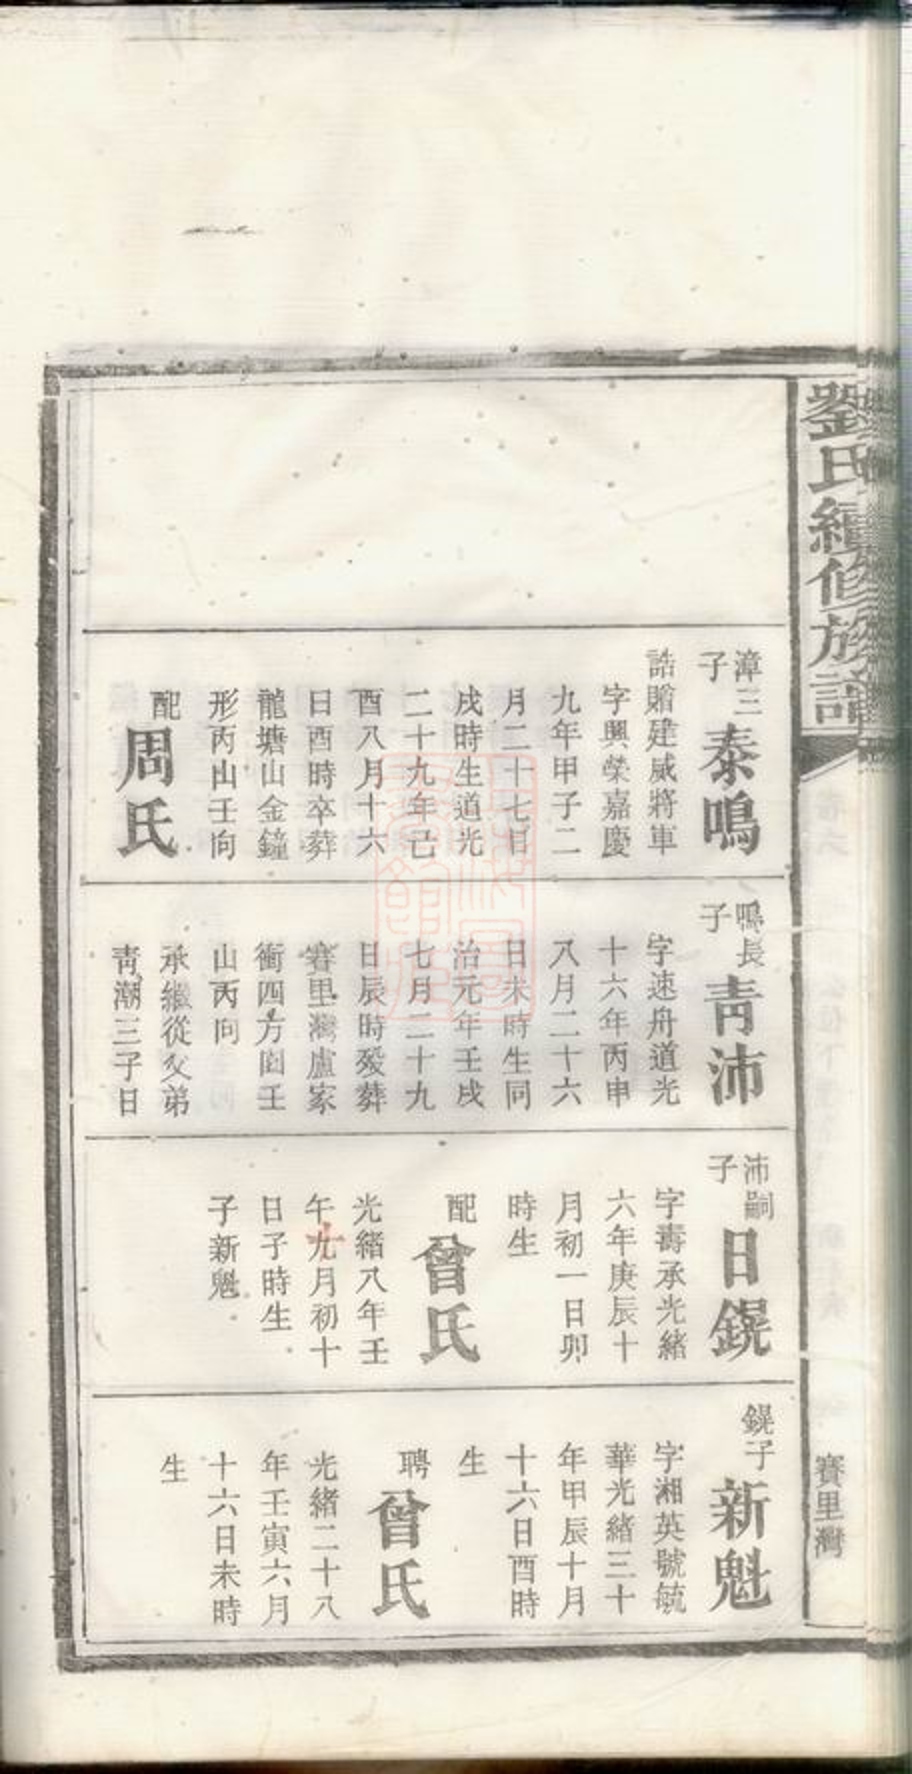 劉氏續修族譜
賽里灣
漳三
子
泰鳴
誥贈建威將軍
字興榮嘉慶
九年甲子二
月二十七日
戌時生道光
二十九年己
酉八月十六
日酉時卒葬
龍塘山金鐘
形丙山壬向
配
周氏
鳴長
子
青沛
字速舟道光
十六年丙申
八月二十六
日未時生同
治元年壬戌
七月二十九
日辰時歿葬
賽里灣盧家
衝四方園壬
山丙向
承繼從父弟
青潮三子日
沛嗣
子
日鎤
字壽承光緒
六年庚辰十
月初一日卯
時生
配
曾氏
光緒八年壬
午九月初十
日子時生
子新魁
鎤子
新魁
字湘英號毓
華光緒三十
年甲辰十月
十六日酉時
生
聘
曾氏
光緒二十八
年壬寅六月
十六日未時
生